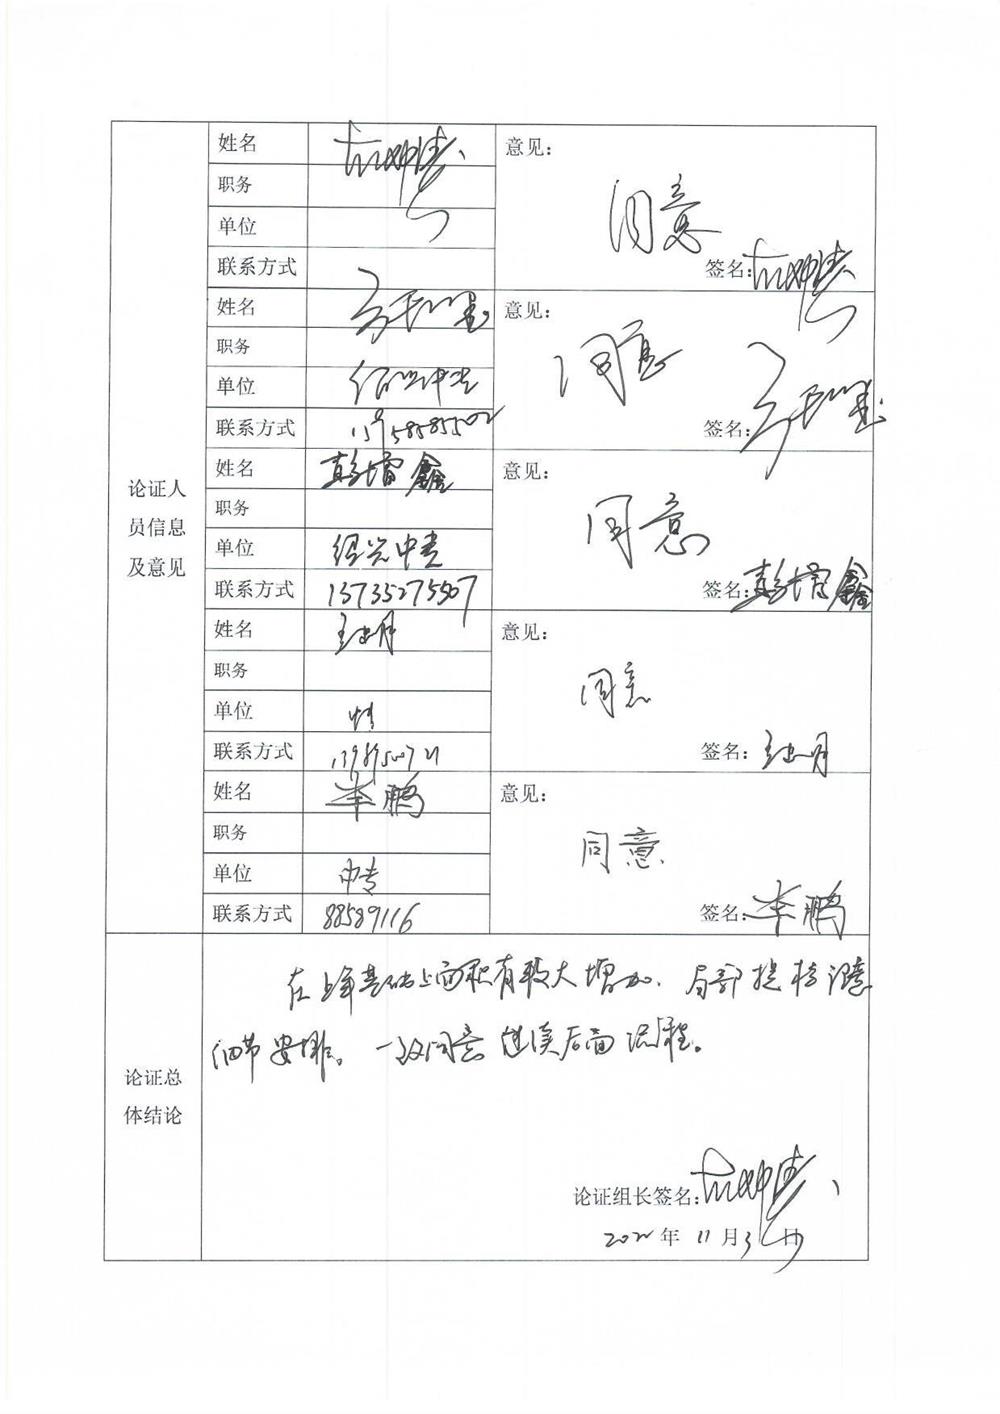 论证人
员信息
及意见
姓名
职务
单位
联系方式
意见：
同意
签名：
姓名
职务
单位 绍兴中专
联系方式
意见：
同意
签名：
姓名 彭增鑫
职务
单位 绍兴中专
联系方式 13735275507
意见：
同意
签名：彭增鑫
姓名
职务
单位
联系方式
意见：
同意
签名：
姓名 李鹏
职务
单位 中专
联系方式 88589116
意见：
同意
签名：李鹏
论证总
体结论
在上年基础上面积有较大增加，局部 注意
细节安排。一致同意 后面流程。
论证组长签名：
2022 年 11 月 3 日